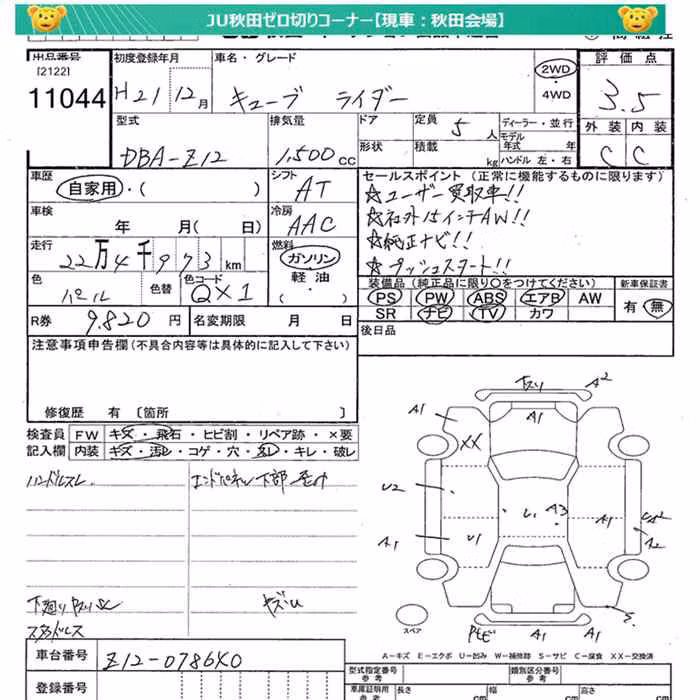 JU秋田ゼロ切りコーナー【現車：秋田会場】
出品番号
[2122]
11044
初度登録年月
H21 12月
車名・グレード
キューブ ライダー
2WD
・
4WD
評価点
3.5
外装 内装
C C
型式
DBA-Z12
排気量
1,500cc
ドア
形状
定員 5人
積載 kg
ディーラー・並行
モデル
年式 年
ハンドル 左・右
車歴
自家用・( )
シフト
AT
車検
年 月( 日)
冷房
AAC
走行
22万4千973km
燃料
ガソリン
・
軽油
( ・ )
色
パール
色替
色コード
QX1
R券 9,820円
名変期限 月 日
セールスポイント (正常に機能するものに限ります)
☆ユーザー買取車!!
☆社外15インチAW!!
☆純正ナビ!!
☆プッシュスタート!!
装備品 (純正品に限り○をつけてください)
PS PW ABS エアB AW
SR ナビ TV カワ
新車保証書
有・無
後日品
注意事項申告欄(不具合内容等は具体的に記入して下さい)
修復歴 有 〔箇所 〕
検査員
記入欄
FW キズ・飛石・ヒビ割・リペア跡・×要
内装 キズ・汚レ・コゲ・穴・スレ・キレ・破レ
ハンドルスレ
エンドパネル下部
下廻りサビ
スタッドレス
キズU
A1
カスリ
A2
A1
XX
U2
A1
U1
U1
A3
A1
A2
A1
A1
S
スペア
A-キズ E-エクボ U-凹み W-補修跡 S-サビ C-腐食 XX-交換済
車台番号
Z12-0786X0
登録番号
型式指定番号
参考
類別区分番号
参考
車庫証明用
参考
長さ cm
幅 cm
高さ cm